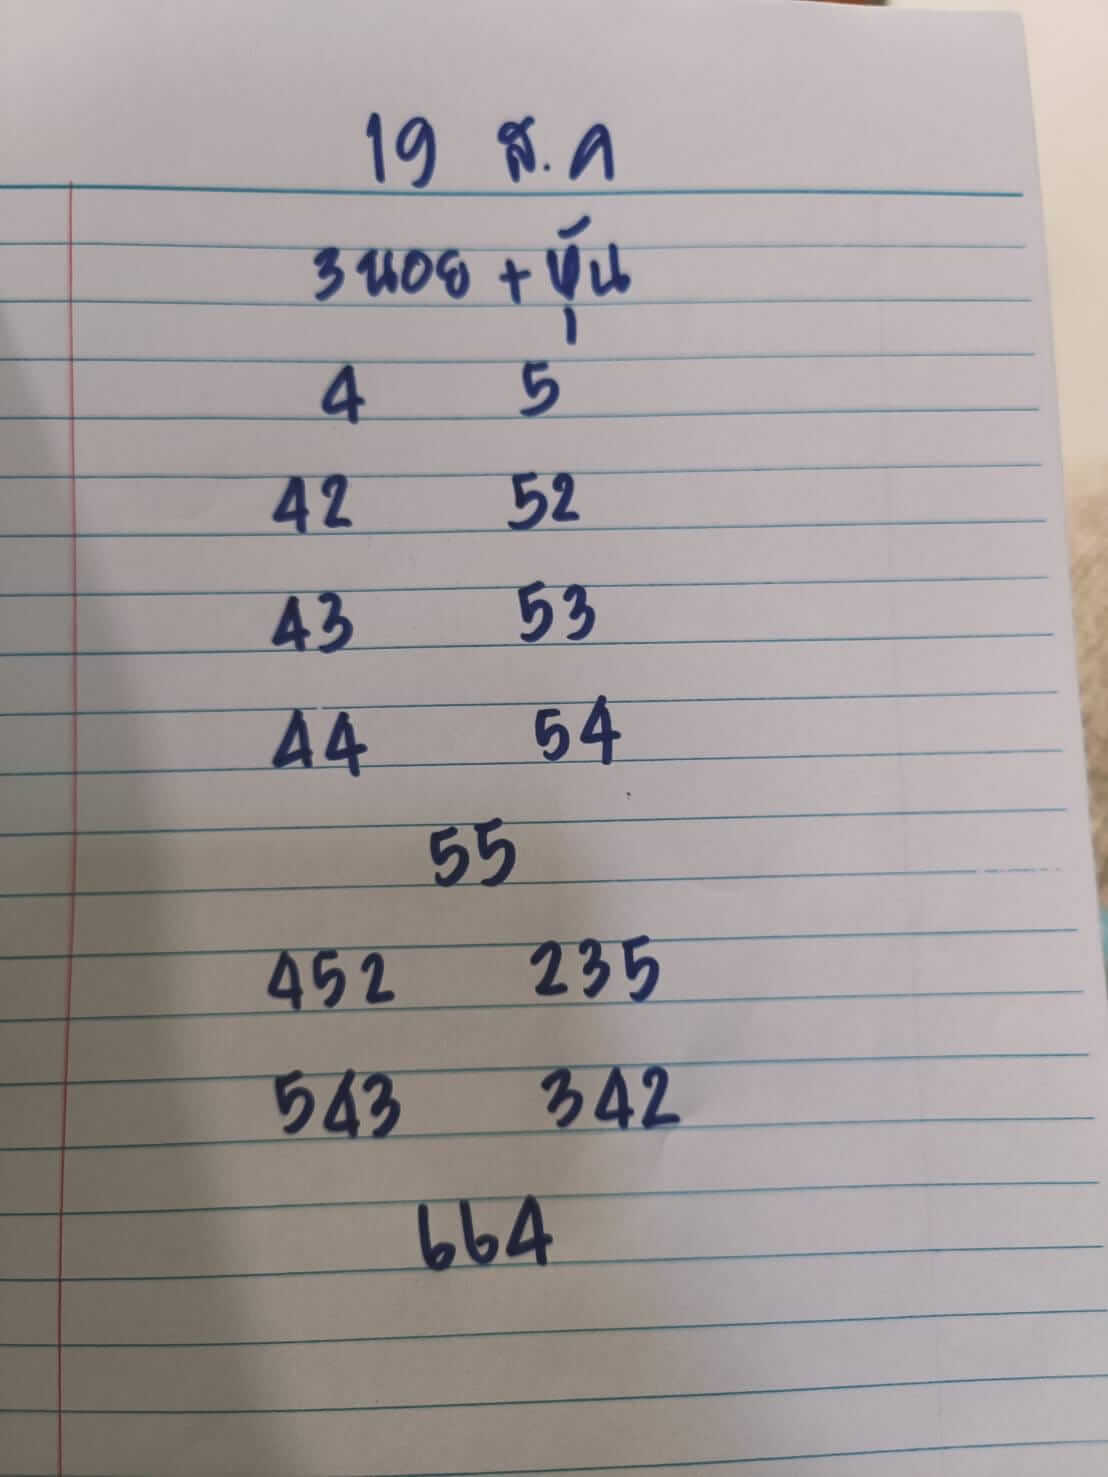 19 ส.ค
3นอย + หุ้น
4 5
42 52
43 53
44 54
55
452 235
543 342
664